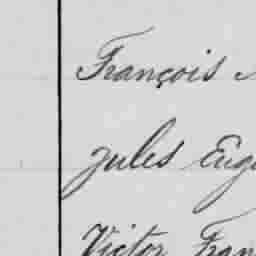 François
Jules Eug
Victor Fran